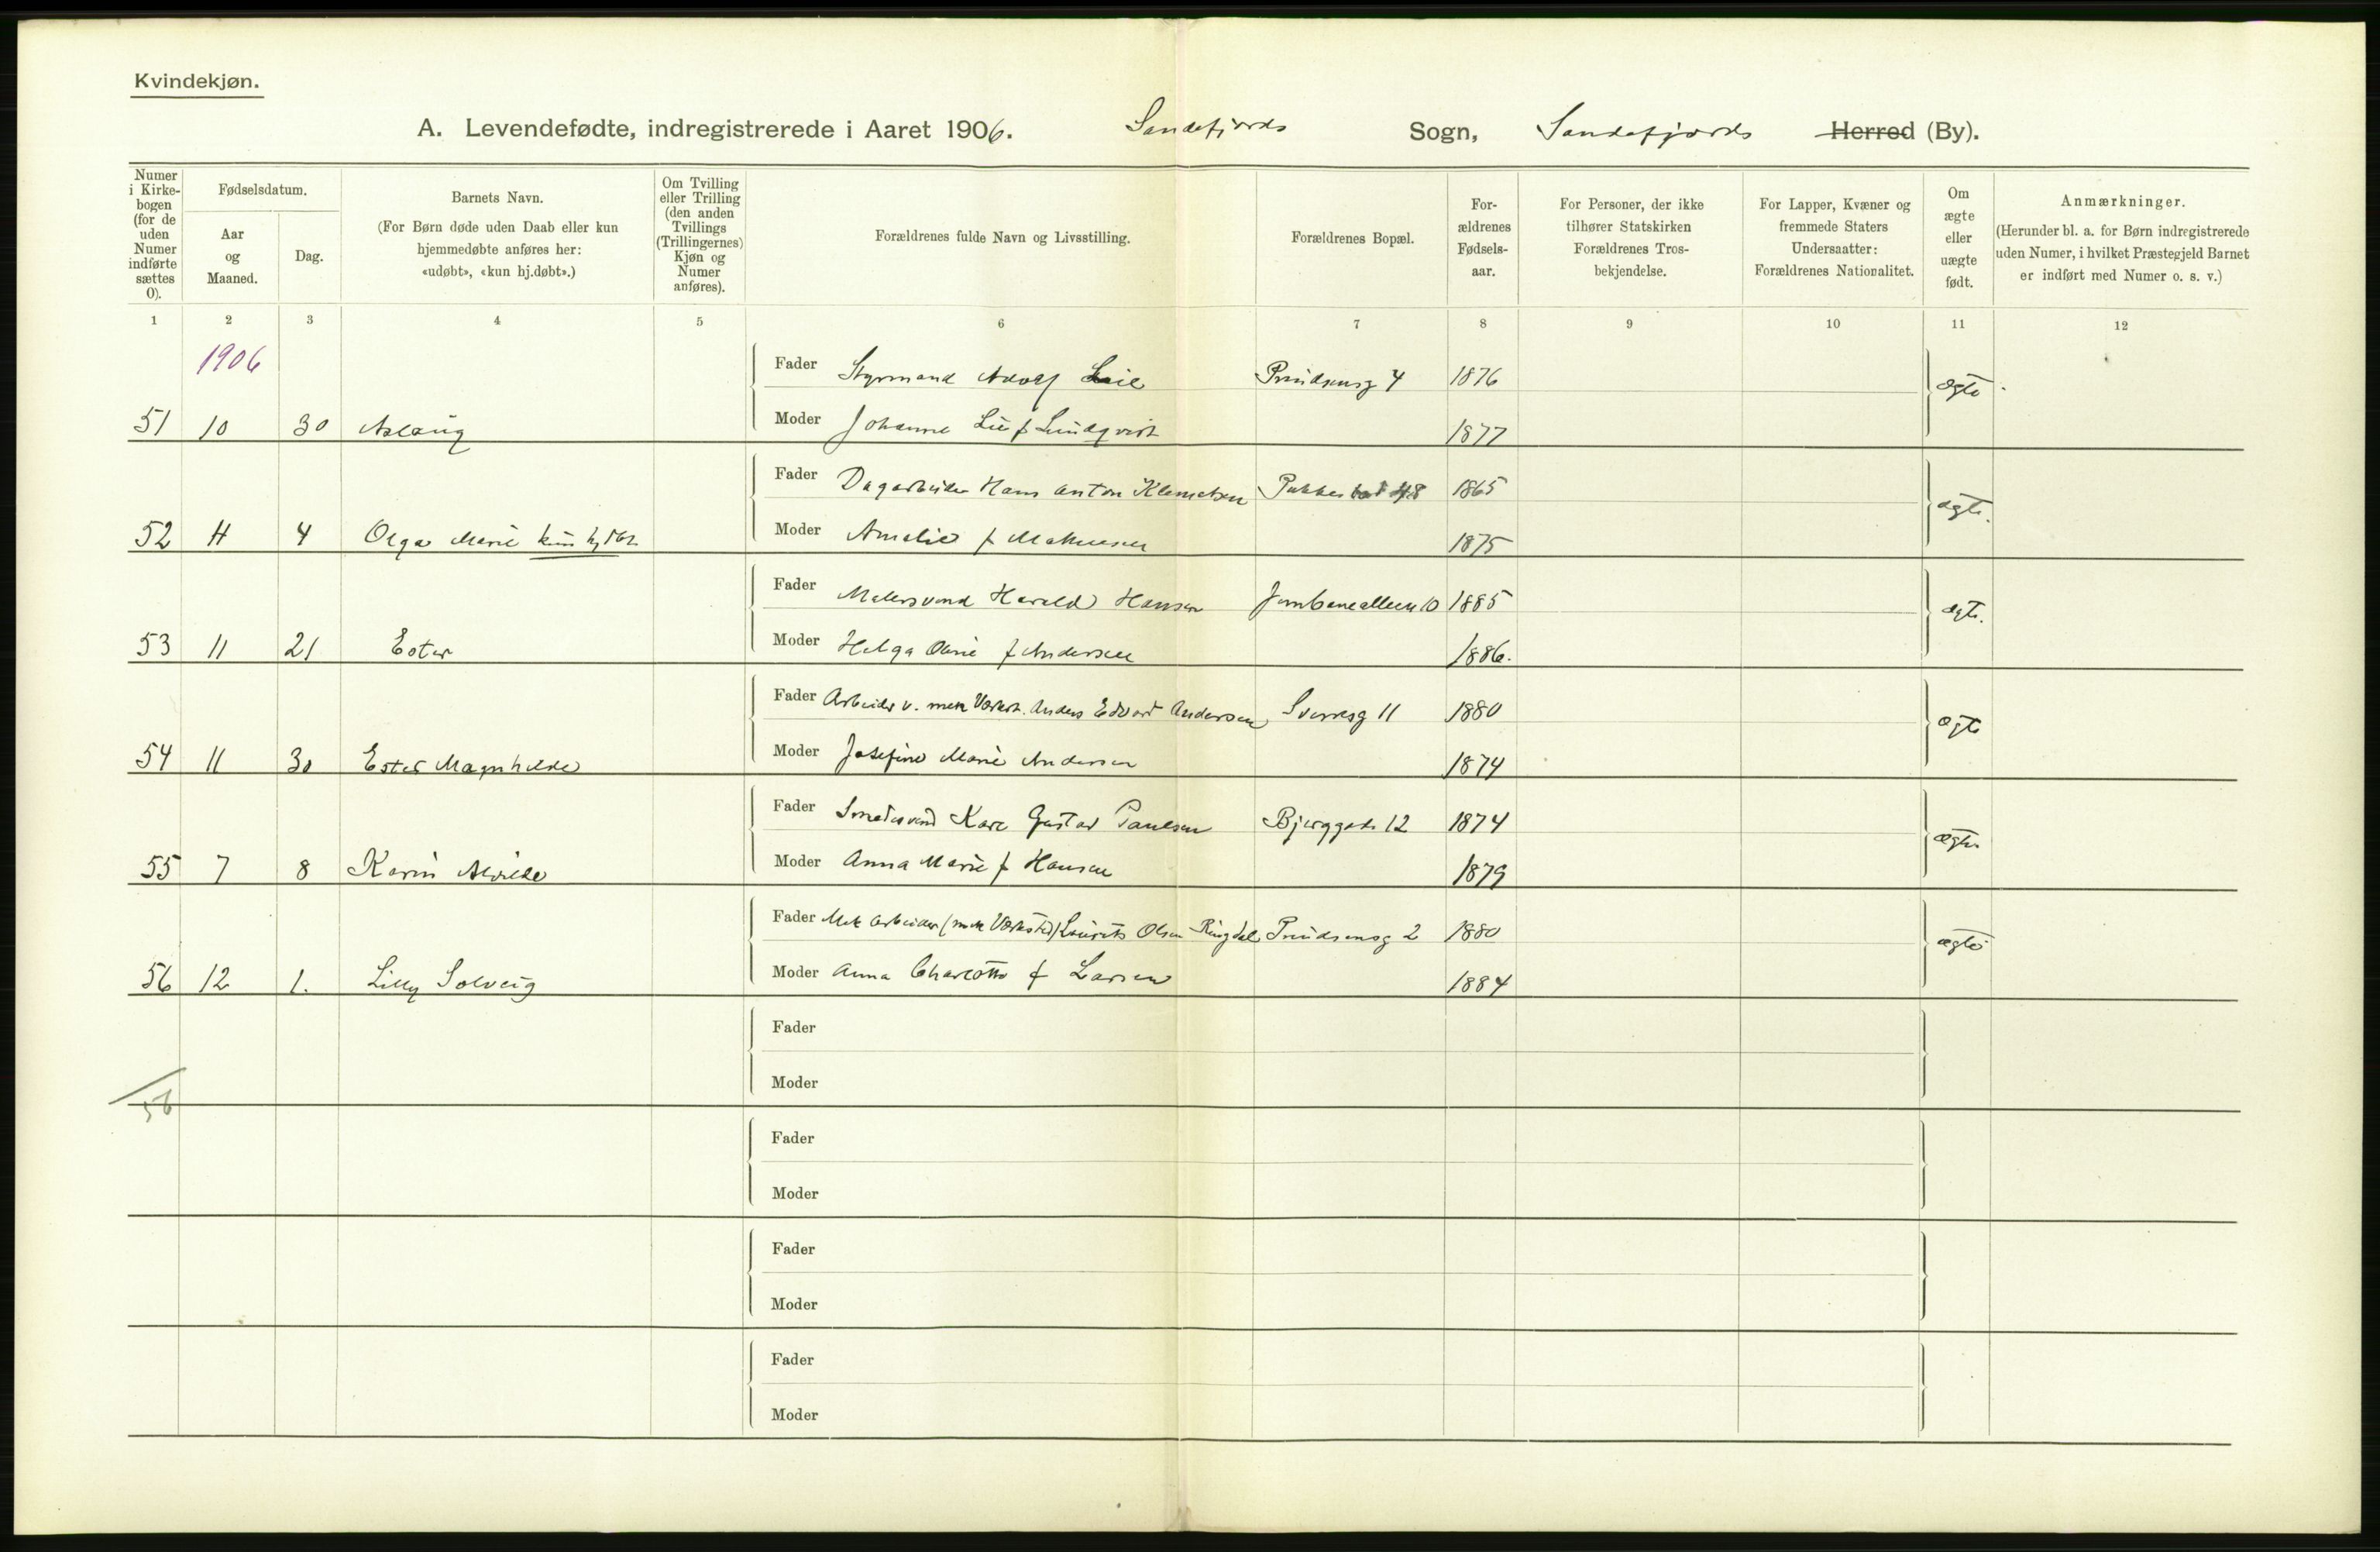 Kvindekjøn.
A. Levendefødte, indregistrerede i Aaret 1906. Sandefjords Sogn, Sandefjords Herred (By).
Numer i Kirke-bogen (for de uden Numer indførte sættes 0).
Fødselsdatum.
Aar og Maaned.
Dag.
Barnets Navn.
(For Børn døde uden Daab eller kun hjemmedøbte anføres her: «udøbt», «kun hj.døbt».)
Om Tvilling eller Trilling (den anden Tvillings (Trillingernes) Kjøn og Numer anføres).
Forældrenes fulde Navn og Livsstilling.
Forældrenes Bopæl.
For-ældrenes Fødsels-aar.
For Personer, der ikke tilhører Statskirken Forældrenes Tros-bekjendelse.
For Lapper, Kvæner og fremmede Staters Undersaatter: Forældrenes Nationalitet.
Om ægte eller uægte født.
Anmærkninger.
(Herunder bl. a. for Børn indregistrerede uden Numer, i hvilket Præstegjeld Barnet er indført med Numer o. s. v.)
1 2 3 4 5 6 7 8 9 10 11 12
1906
Fader Styrmand Adolf Lie 4 1876 ægte
51 10 30 Aslaug Moder Johanne Lie f Lundqvist 1877
Fader Dagarbeider Hans Anton Klemetsen 48 1865 ægte.
52 11 4 Olga Marie kun hj dbt. Moder Amalie f 1875
Fader Malersvend Harald Hansen Jernbanealleen 10 1885 ægte.
53 11 21 Ester Moder Helga Olsine f Andersen 1886.
Fader Arbeider v. mek Værkst. Anders Edvard Andersen Sverresg 11 1880 ægte
54 11 30 Ester Magnhilde Moder Josefine Marie Andersen 1874
Fader Smedesvend Karl Gustav Paulsen Bjerggade 12 1874 ægte
55 7 8 Karin Alvilde Moder Anna Marie f Hansen 1879
Fader Mek Arbeider (mek Værksted) Laurits Olsen Ringdal 2 1880 ægte
56 12 1. Lilly Solveig Moder Anna Charlotte f Larsen 1884
Fader
Moder
56
Fader
Moder
Fader
Moder
Fader
Moder